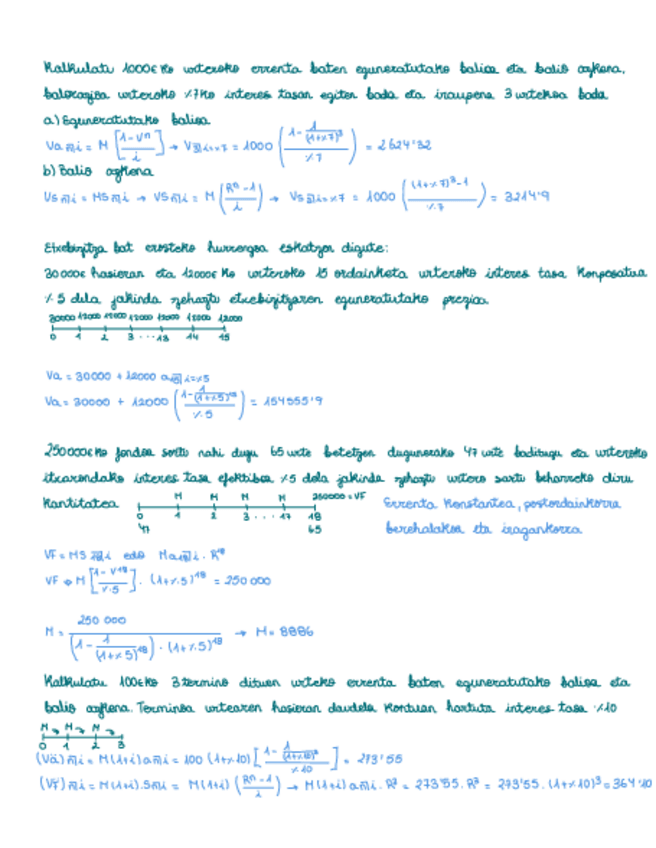 Kalkulatu 1000€ko urteroko errenta baten eguneratutako balioa eta balio azkena,
balorazioa urteroko %7ko interes tasan egiten bada eta iraupena 3 urtekoa bada
a) Eguneratutako balioa
Va n̅|i = M [(1-Vⁿ)/i] → V3̅|i=%7 = 1000 ((1 - 1/(1+%7)³)/%7) = 2624'32
b) Balio azkena
Vs n̅|i = MS n̅|i → VS n̅|i = M ((Rⁿ-1)/i) → Vs 3̅|i=%7 = 1000 (((1+%7)³-1)/%7) = 3214'9
Etxebizitza bat erosteko hurrengoa eskatzen digute:
30000€ hasieran eta 12000€ko urteroko 15 ordainketa urteroko interes tasa konposatua
%5 dela jakinda zehaztu etxebizitzaren eguneratutako prezioa.
30000 12000 12000 12000 12000 12000 12000
0 1 2 3 ... 13 14 15
Va = 30000 + 12000 a15̅|i=%5
Va = 30000 + 12000 ((1 - 1/(1+%5)¹⁵)/%5) = 154555'9
250000€ko fondoa sortu nahi dugu 65 urte betetzen dugunerako 47 urte baditugu eta urteroko
itxarondako interes tasa efektiboa %5 dela jakinda zehaztu urtero sartu beharreko diru
kantitatea
M M M M 250000 = VF
0 1 2 3 ... 17 18
47 65
Errenta konstantea, postordainkorra
berehalakoa eta iragankorra
VF = MS n̅|i edo Ma n̅|i . R¹⁸
VF → M [(1-V¹⁸)/%5] . (1+%5)¹⁸ = 250 000
M = 250 000 / ((1 - 1/(1+%5)¹⁸) . (1+%5)¹⁸) → M = 8886
Kalkulatu 100€ko 3 termino dituen urteko errenta baten eguneratutako balioa eta
balio azkena. Terminoa urtearen hasieran daudela kontuan hartuta interes tasa %10
M M M
0 1 2 3
(Vä) n̅|i = M(1+i) a n̅|i = 100 (1+%10) [(1 - 1/(1+%10)³)/%10] = 273'55
(V̈F) n̅|i = M(1+i).S n̅|i = M(1+i) ((Rⁿ-1)/i) → M(1+i) a n̅|i . R³ = 273'55 . R³ = 273'55 . (1+%10)³ = 364'10